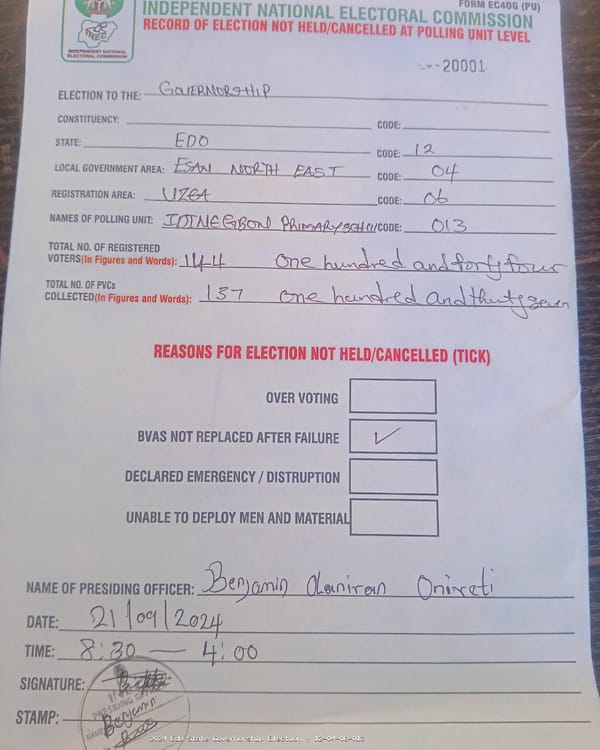 FORM EC40G (PU)
INDEPENDENT NATIONAL ELECTORAL COMMISSION
RECORD OF ELECTION NOT HELD/CANCELLED AT POLLING UNIT LEVEL
INEC
INDEPENDENT NATIONAL
ELECTORAL COMMISSION
20001
ELECTION TO THE: GOVERNORSHIP
CONSTITUENCY: CODE:
STATE: EDO CODE: 12
LOCAL GOVERNMENT AREA: ESAN NORTH EAST CODE: 04
REGISTRATION AREA: UZEA CODE: 06
NAMES OF POLLING UNIT: IDINEGBON PRIMARY SCHOL CODE: 013
TOTAL NO. OF REGISTERED
VOTERS(In Figures and Words): 144 One hundred and forty four
TOTAL NO. OF PVCs
COLLECTED(In Figures and Words): 137 One hundred and thirty seven
REASONS FOR ELECTION NOT HELD/CANCELLED (TICK)
OVER VOTING
BVAS NOT REPLACED AFTER FAILURE ✓
DECLARED EMERGENCY / DISTRUPTION
UNABLE TO DEPLOY MEN AND MATERIAL
NAME OF PRESIDING OFFICER: Benjamin Olaniran
DATE: 21/09/2024
TIME: 8:30 — 4:00
SIGNATURE:
STAMP:
PRESIDING
NAME Benjamin
2024 Edo State Governorship Election - 12-04-06-013